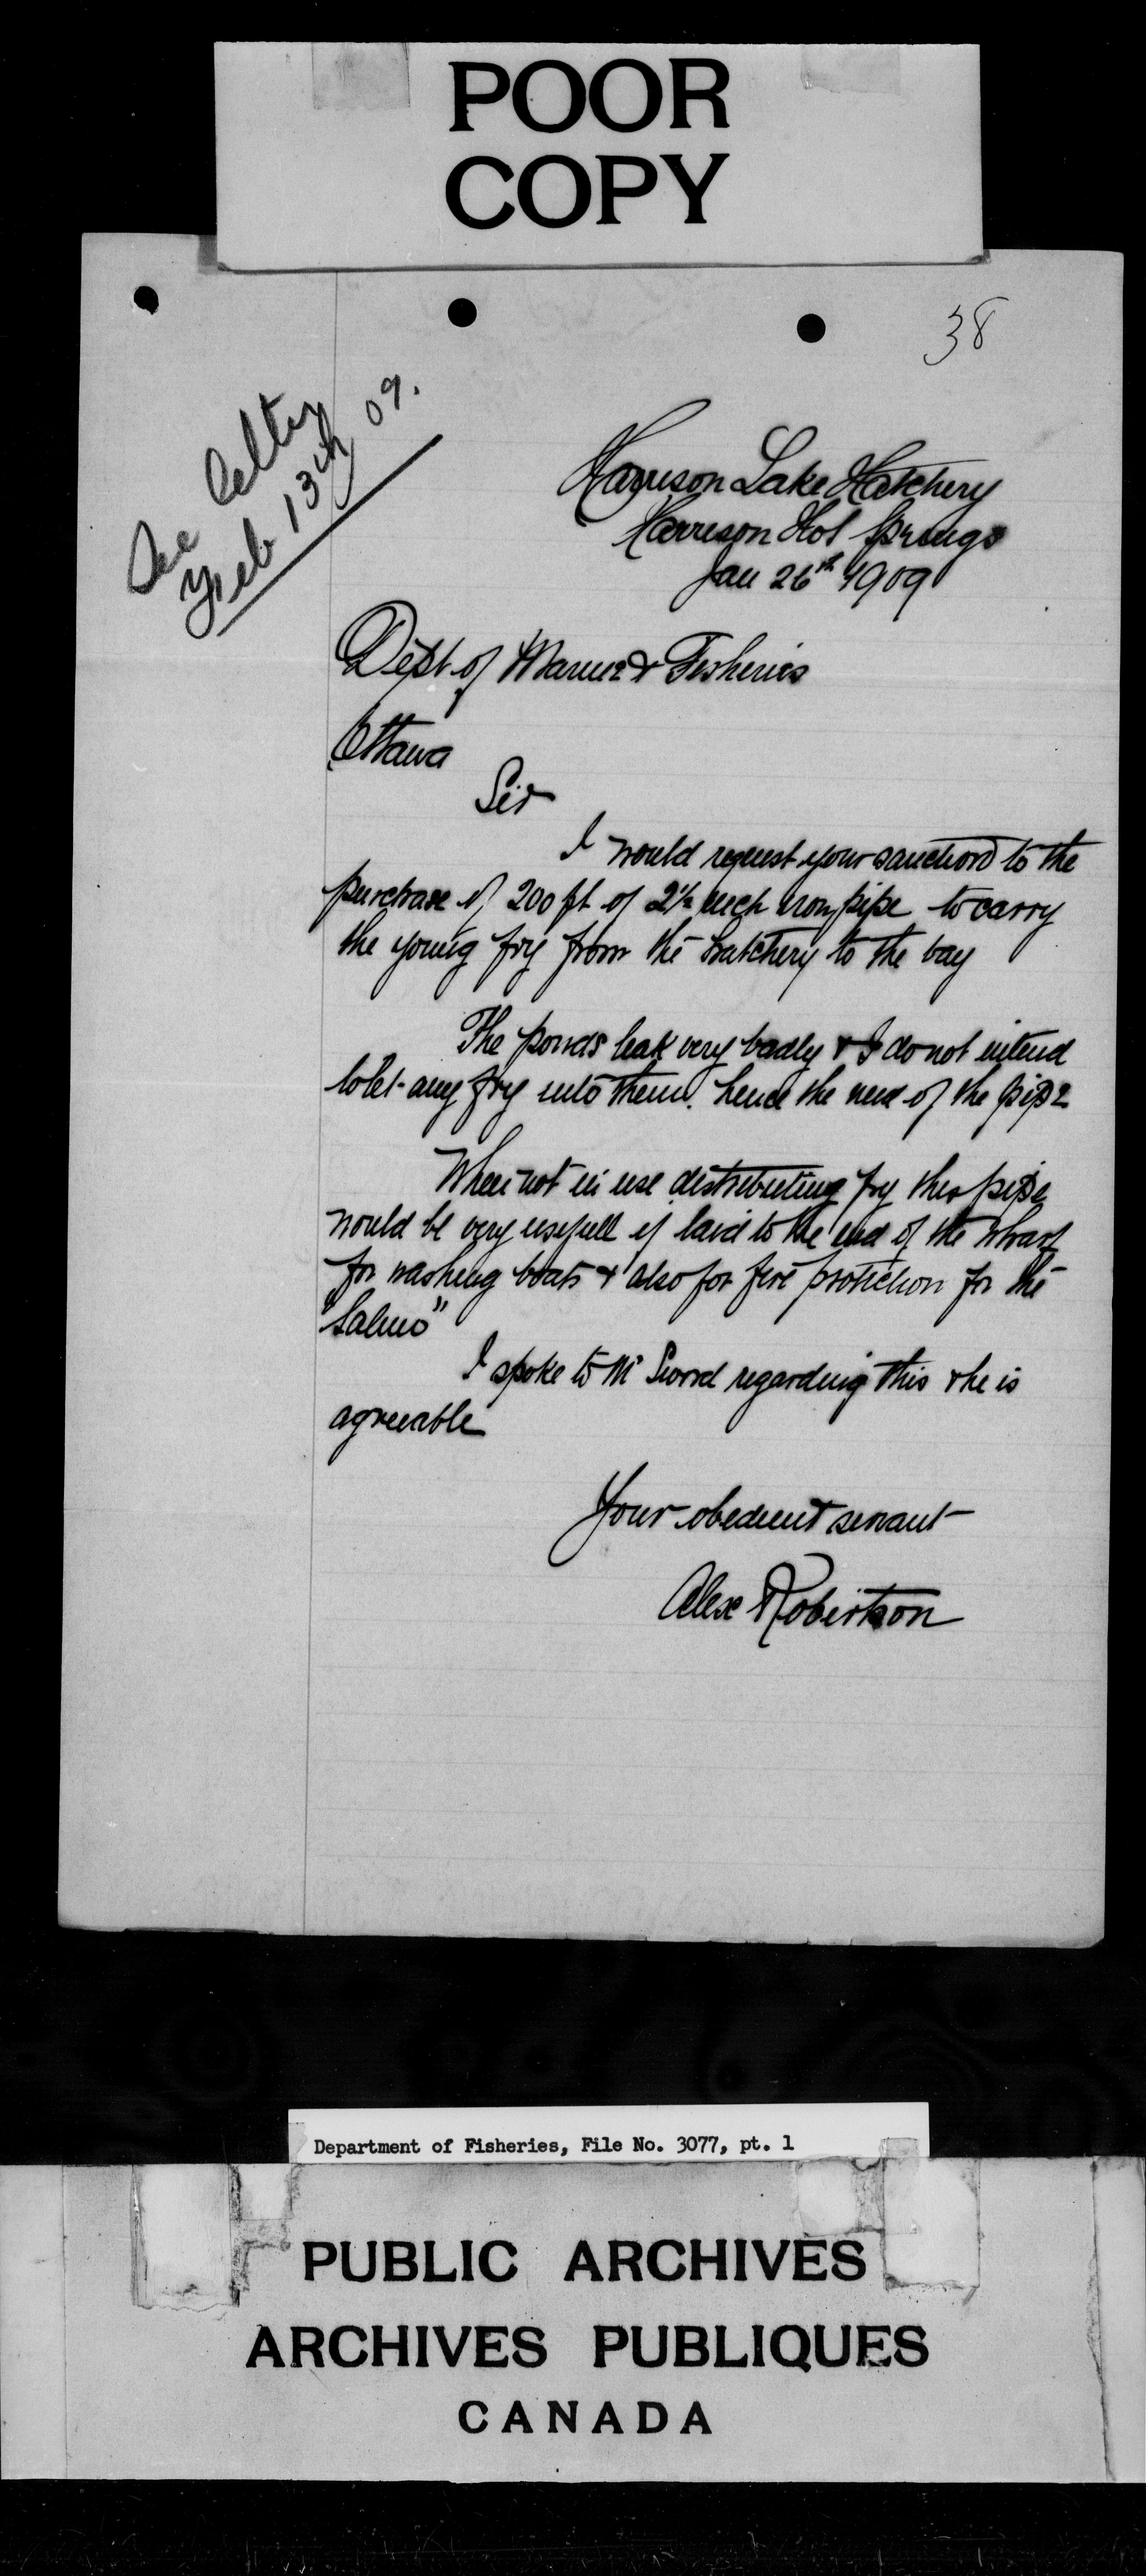 POOR
COPY
38
See letter
Feb 13th 09.
Harrison Lake Hatchery
Harrison Hot Springs
Jan 26th 1909
Dept of Marine & Fisheries
Ottawa
Sir
I would request your sanction to the
purchase of 200 ft of 2½ inch iron pipe to carry
the young fry from the hatchery to the bay
The ponds leak very badly & I do not intend
to let any fry into them. hence the need of the pipe
When not in use distributing fry this pipe
would be very usefull if laid to the end of the wharf
for washing boats & also for fire protection for the
"Salmo"
I spoke to Mr Sword regarding this & he is
agreeable
Your obedient servant
Alex Robertson
Department of Fisheries, File No. 3077, pt. 1
PUBLIC ARCHIVES
ARCHIVES PUBLIQUES
CANADA